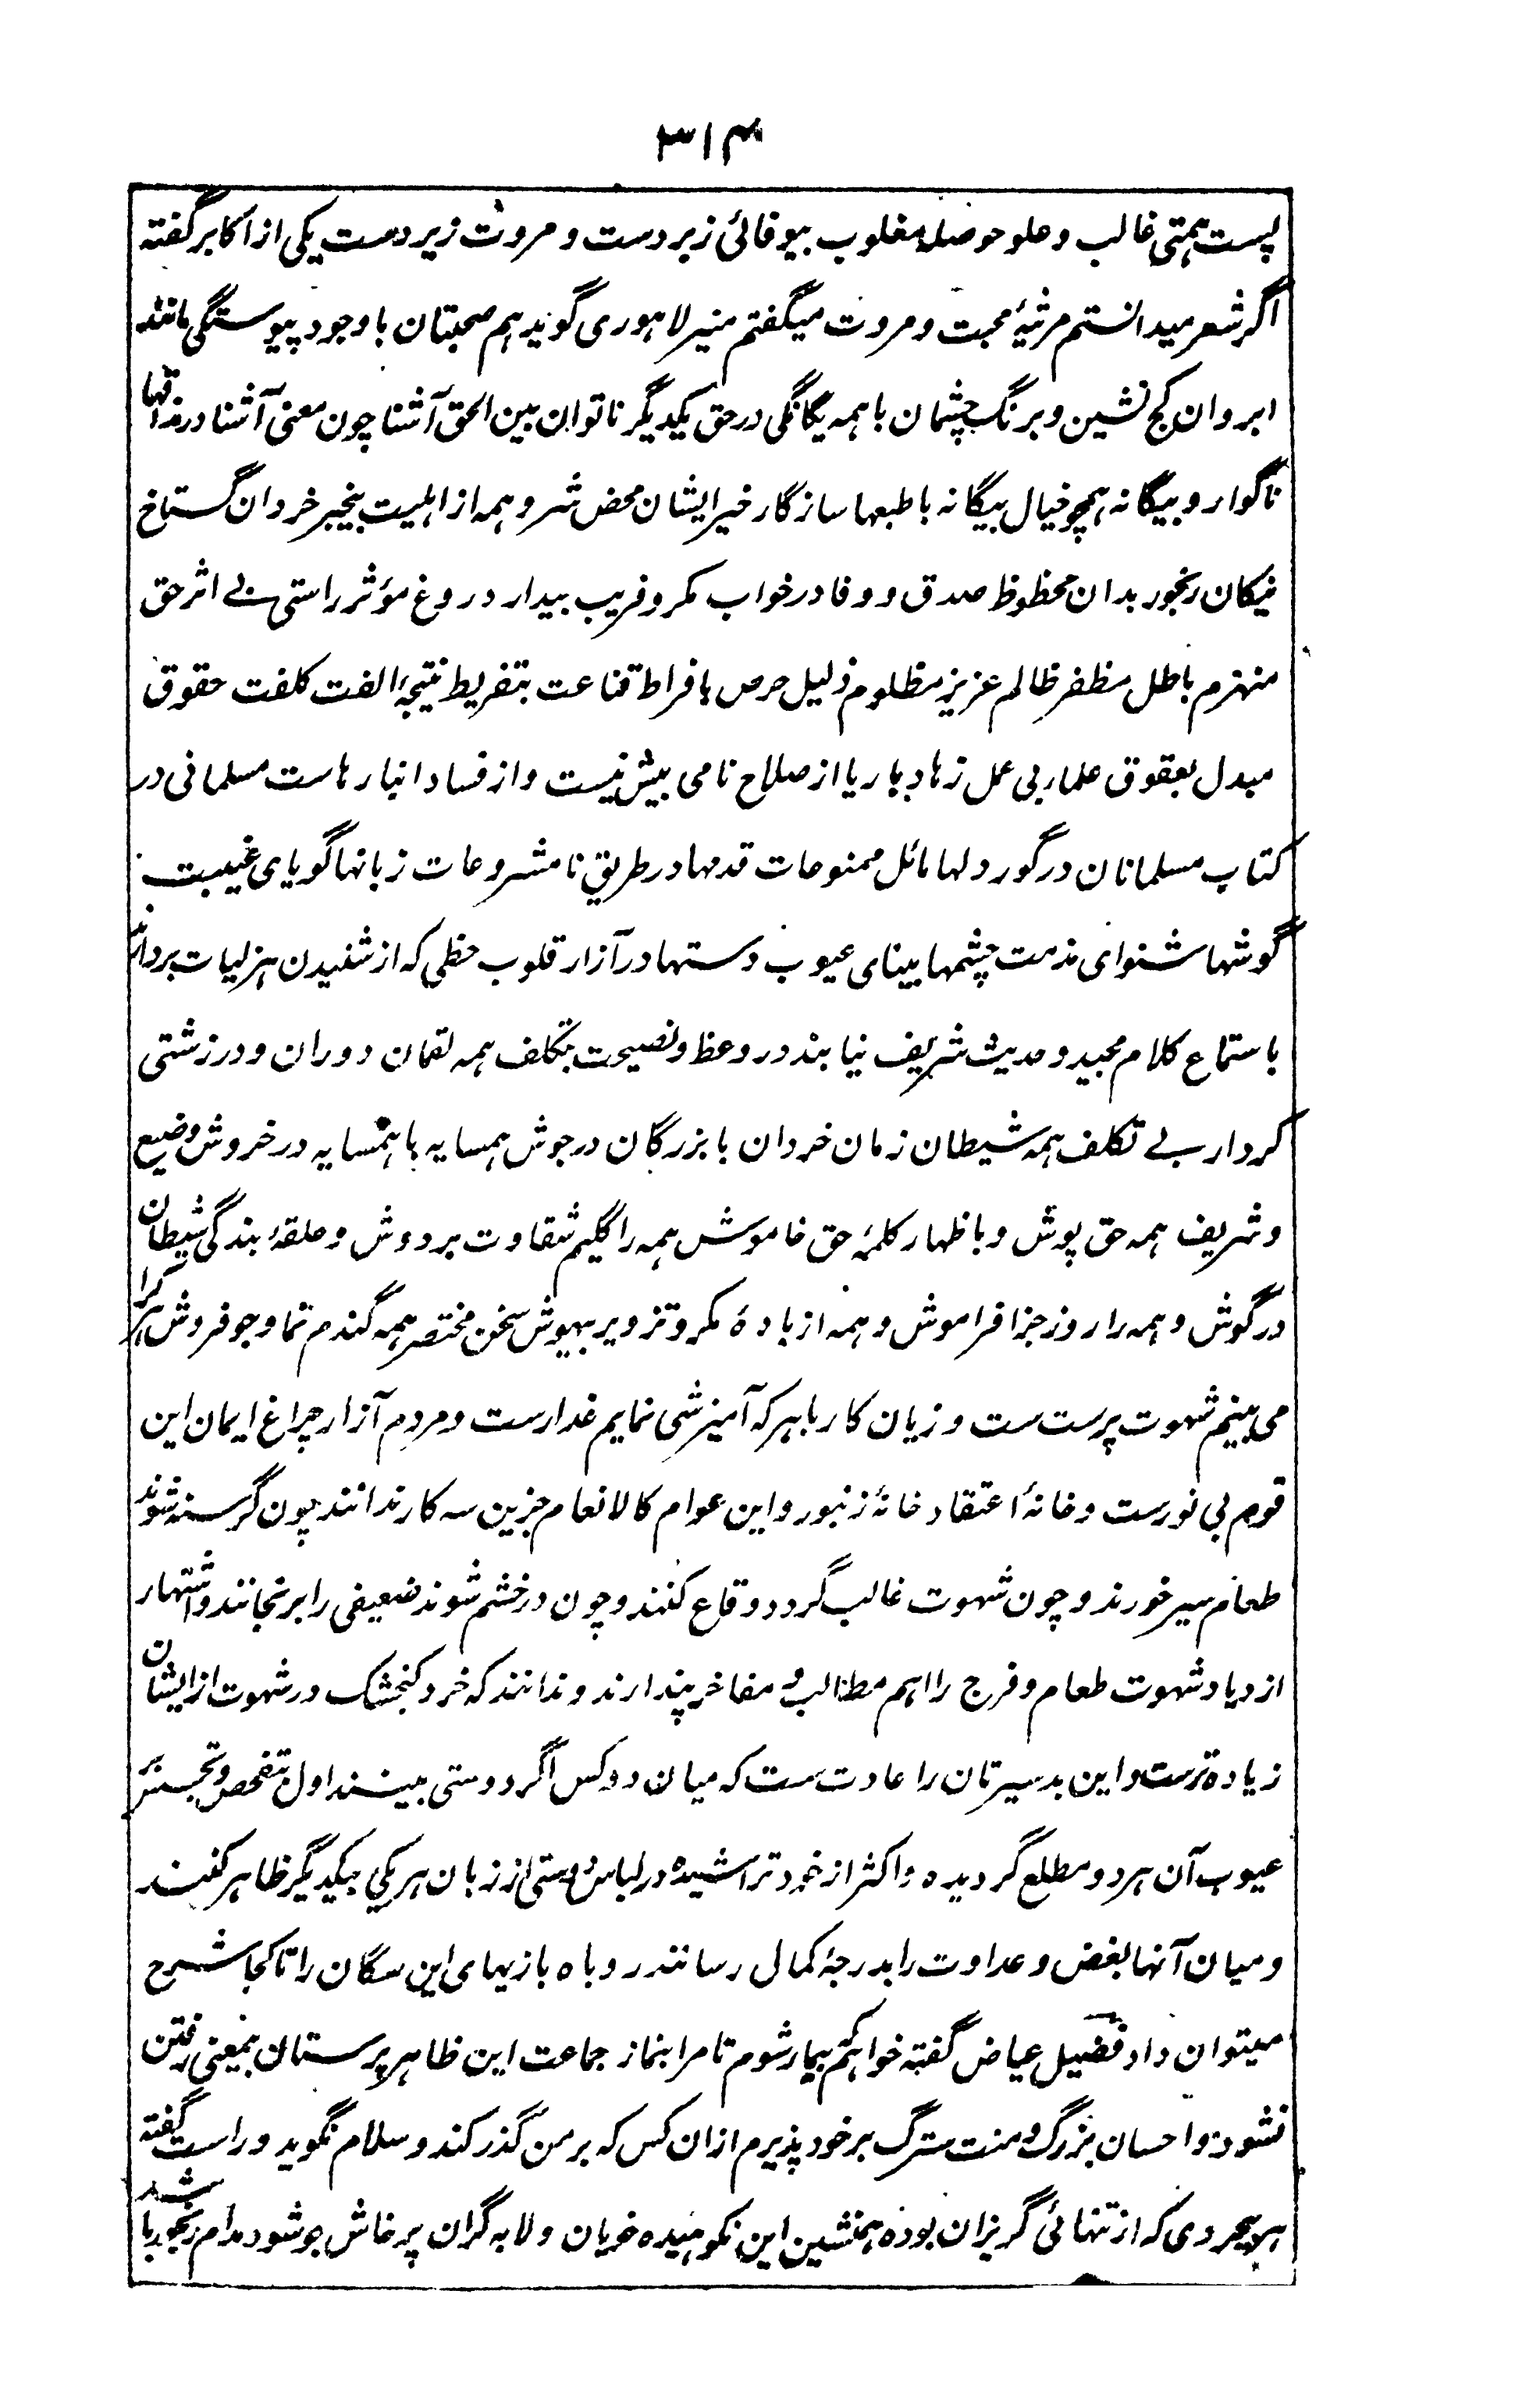 ۳۱۴
پست ہمتی غالب و علو حوصلہ مغلوب بیوفائی زبردست و مروت زیردست یکی از اکابر گفتہ
اگر شعر میدانستم مرثیۂ محبت و مروت میگفتم منیر لاہوری گوید ہم صحبتان با وجود پیوستگی مانند
ابروان کج نشین و برنگ چشمان با ہمہ یگانگی در حق یکدیگر ناتوان بین الحق آشنا چون معنی آشنا در مذاقها
ناگوار و بیگانہ ہمچو خیال بیگانہ با طبعها سازگار خیر ایشان محض شر و ہمہ از اہلیت بیخبر خردان گستاخ
نیکان رنجور بدان محظوظ صدق و وفا در خواب مکر و فریب بیدار دروغ مؤثر راستی بے اثر حق
منہزم باطل مظفر ظالم عزیز مظلوم ذلیل حرص بافراط قناعت بتفریط نتیجۂ الفت کلفت حقوق
مبدل بعقوق علماء بی عمل زہاد با ریا از صلاح نامی بیش نیست و از فساد انبارہاست مسلمانی در
کتاب مسلمانان در گور دلها مائل ممنوعات قدمها در طریق نامشروعات زبانها گویای غیبت
گوشها شنوای مذمت چشمها بینای عیوب دستها در آزار قلوب حظی کہ از شنیدن ہزلیات بردارند
باستماع کلام مجید و حدیث شریف نیابند در وعظ و نصیحت بتکلف ہمہ لقمان دوران و در زشتی
کردار بے تکلف ہمہ شیطان زمان خردان با بزرگان در جوش ہمسایہ با ہمسایہ در خروش وضیع
و شریف ہمہ حق پوش و باظهار کلمۂ حق خاموش ہمہ را گلیم شقاوت بر دوش و حلقۂ بندگی شیطان
در گوش و ہمہ را روز جزا فراموش و ہمہ از بادۂ مکر و تزویر بیہوش سخن مختصر ہمہ گندم نما و جو فروش ہر کرا
می بینم شہوت پرست ست و زیان کار با ہر کہ آمیزش می نمایم غدارست و مردم آزار چراغ ایمان این
قوم بی نورست و خانۂ اعتقاد خانۂ زنبور و این عوام کالانعام جزین سہ کار ندانند چون گرسنہ شوند
طعام سیر خورند و چون شہوت غالب گردد وقاع کنند و چون در خشم شوند ضعیفی را برنجانند و اشتہار
ازدیاد شہوت طعام و فرج را اہم مطالب و مفاخر پندارند و ندانند کہ خر و کنجشک در شہوت از ایشان
زیادہ ترست و این بد سیرتان را عادت ست کہ میان دو کس اگر دوستی بینند اول بتفحص و تجسس بر
عیوب آن ہر دو مطلع گردیدہ و اکثر از خود تراشیدہ در لباس دوستی از زبان ہر یکی بیکدیگر ظاہر کنند
و میان آنها بغض و عداوت را بدرجۂ کمال رسانند روباہ بازیهای این سگان را تا کجا شرح
میتوان داد فضیل عیاض گفتہ خواہم بیمار شوم تا مرا بنماز جماعت این ظاہر پرستان بیمعنی رفتن
نشود و احسان بزرگ و منت سترگ بر خود پذیرم از ان کس کہ بر من گذر کند و سلام نگوید و راست گفتہ
ہر بیخردی کہ از تنهائی گریزان بودہ ہمنشین این نکوہیدہ خویان و لابہ گران پرخاش جو شود مدام رنجور باشد